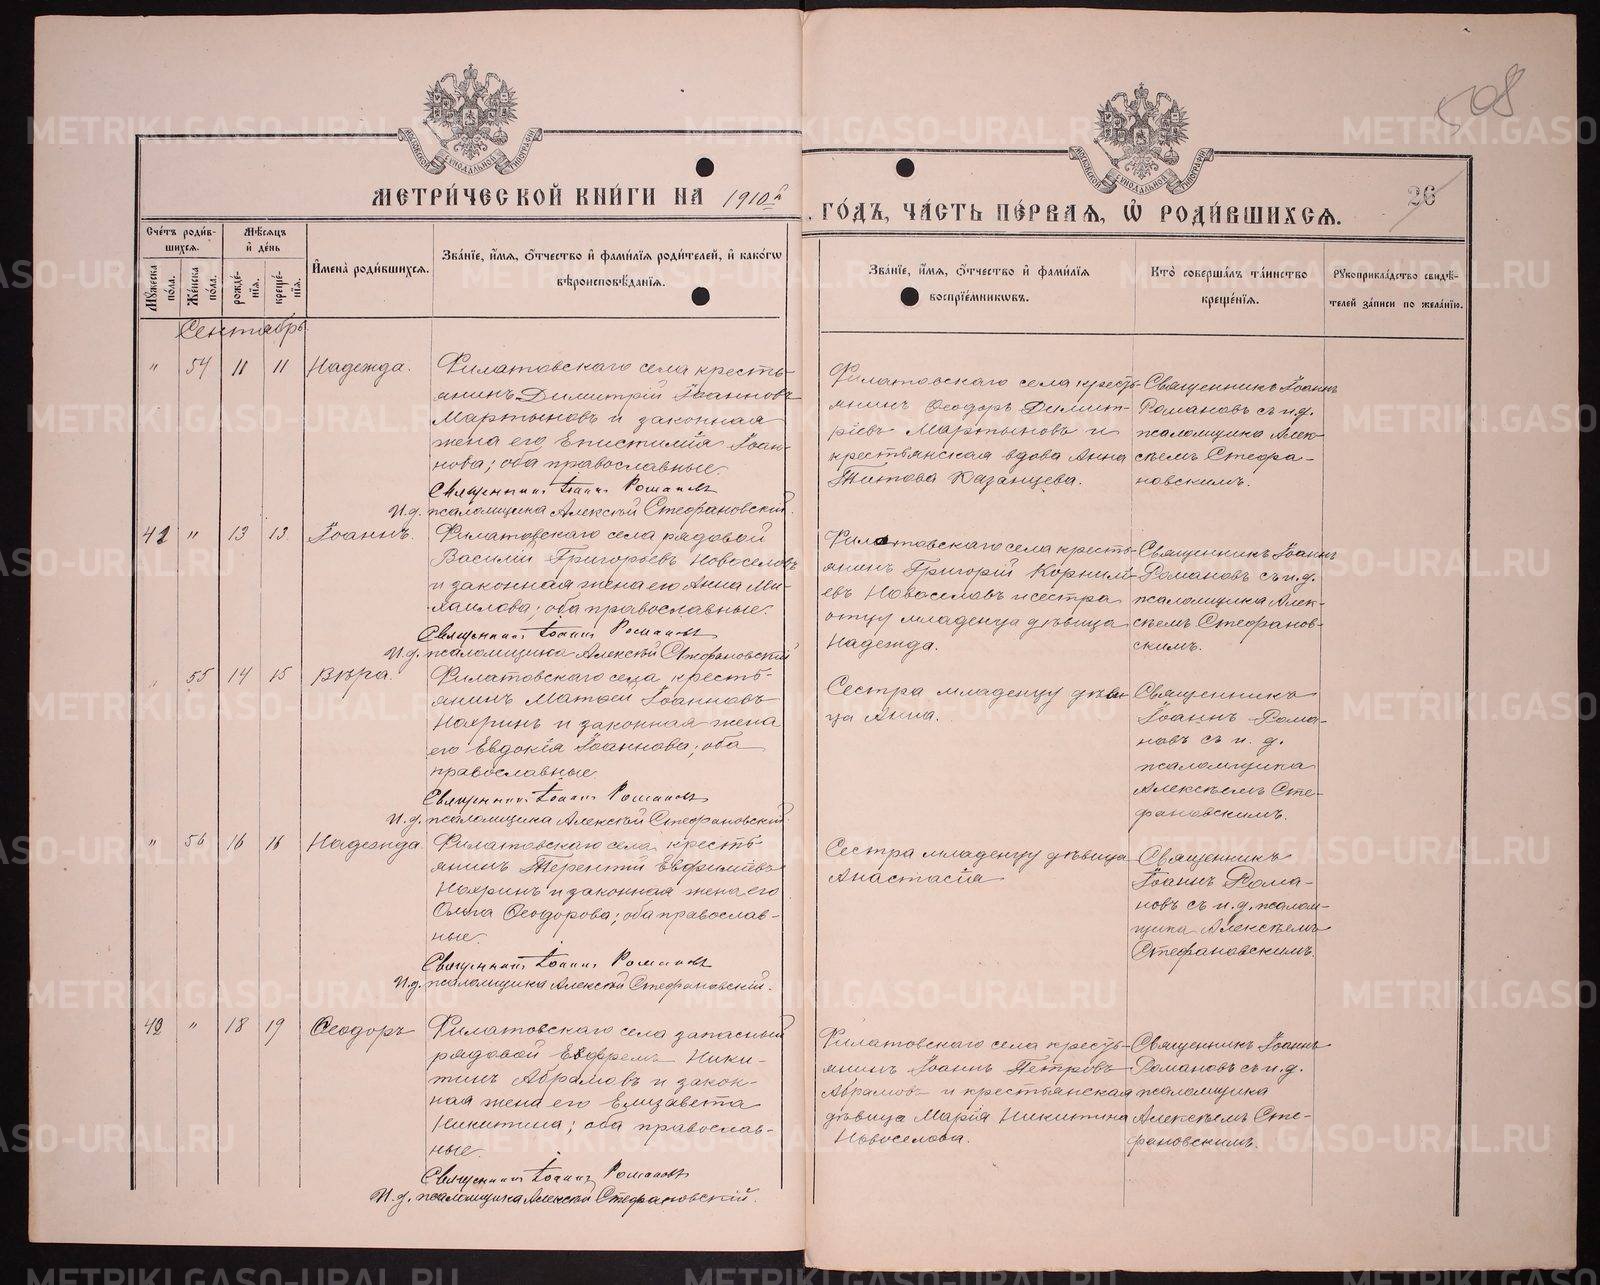 508
МЕТРИ́ЧЕСКОЙ КНИ́ГИ НА 1910й
ГО́ДЪ, ЧА́СТЬ ПЕ́РВАЯ, Ѡ҆ РОДИ́ВШИХСЯ.
26
Сче́тъ роди́в-
шихся.
Мѣ́сяцъ
и҆ де́нь
Мꙋ́жеска по́ла.
Же́нска по́ла.
рожде́-
нїя.
креще́-
нїя.
И҆мена̀ роди́вшихся.
Зва́нїе, и҆́мя, ѻ҆́тчество и҆ фами́лїя роди́телей, и҆ како́гѡ
вѣроисповѣ́данїя.
Зва́нїе, и҆́мя, ѻ҆́тчество и҆ фами́лїя
воспрїе́мниковъ.
Кто̀ соверша́лъ та́инство
креще́нїя.
Рꙋкоприкла́дство свидѣ́-
телей за́писи по жела́нїю.
Сентябрь
" 54 11 11 Надежда.
Филатовскаго села кресть-
янинъ Димитрій Іоанновъ
Мартыновъ и законная
жена его Епистимія Іоан-
нова; оба православные.
Священникъ Іоаннъ Романовъ
И.д. псаломщика Алексѣй Стефановскій.
Филатовскаго села кресть-
янинъ Ѳеодоръ Димит-
ріевъ Мартыновъ и
крестьянская вдова Анна
Титова Казанцева.
Священникъ Іоаннъ
Романовъ съ и.д.
псаломщика Алек-
сѣемъ Стефа-
новскимъ.
41 " 13 13. Іоаннъ.
Филатовскаго села рядовой
Василій Григорьевъ Новоселовъ
и законная жена его Анна Ми-
хаилова; оба православные.
Священникъ Іоаннъ Романовъ
И.д. псаломщика Алексѣй Стефановскій
Филатовскаго села кресть-
янинъ Григорій Корнилі-
евъ Новоселовъ и сестра
отцу младенца дѣвица
Надежда.
Священникъ Іоаннъ
Романовъ съ и.д.
псаломщика Алек-
сѣемъ Стефанов-
скимъ.
" 55 14 15 Вѣра.
Филатовскаго села кресть-
янинъ Матѳей Іоанновъ
Нояринъ и законная жена
его Евдокія Іоаннова; оба
православные.
Священникъ Іоаннъ Романовъ
И.д. псаломщика Алексѣй Стефановскій
Сестра младенцу дѣви-
ца Анна.
Священникъ
Іоаннъ Рома-
новъ съ и. д.
псаломщика
Алексѣемъ Сте-
фановскимъ.
" 56 16 16 Надежда
Филатовскаго села кресть-
янинъ Терентій Евфиміевъ
Нояринъ и законная жена его
Ольга Ѳеодорова; оба православ-
ные.
Священникъ Іоаннъ Романовъ
И.д. псаломщика Алексѣй Стефановскій.
Сестра младенцу дѣвица
Анастасія
Священникъ
Іоаннъ Рома-
новъ съ и.д. псалом-
щика Алексѣемъ
Стефановскимъ.
42 " 18 19 Ѳеодоръ
Филатовскаго села запасный
рядовой Евфремъ Ники-
тинъ Абрамовъ и закон-
ная жена его Елизавета
Никитина; оба православ-
ные.
Священникъ Іоаннъ Романовъ
И.д. псаломщика Алексѣй Стефановскій.
Филатовскаго села кресть-
янинъ Іоаннъ Петровъ
Абрамовъ и крестьянская
дѣвица Марія Никитина
Новоселова.
Священникъ Іоаннъ
Романовъ съ и.д.
псаломщика
Алексѣемъ Сте-
фановскимъ.